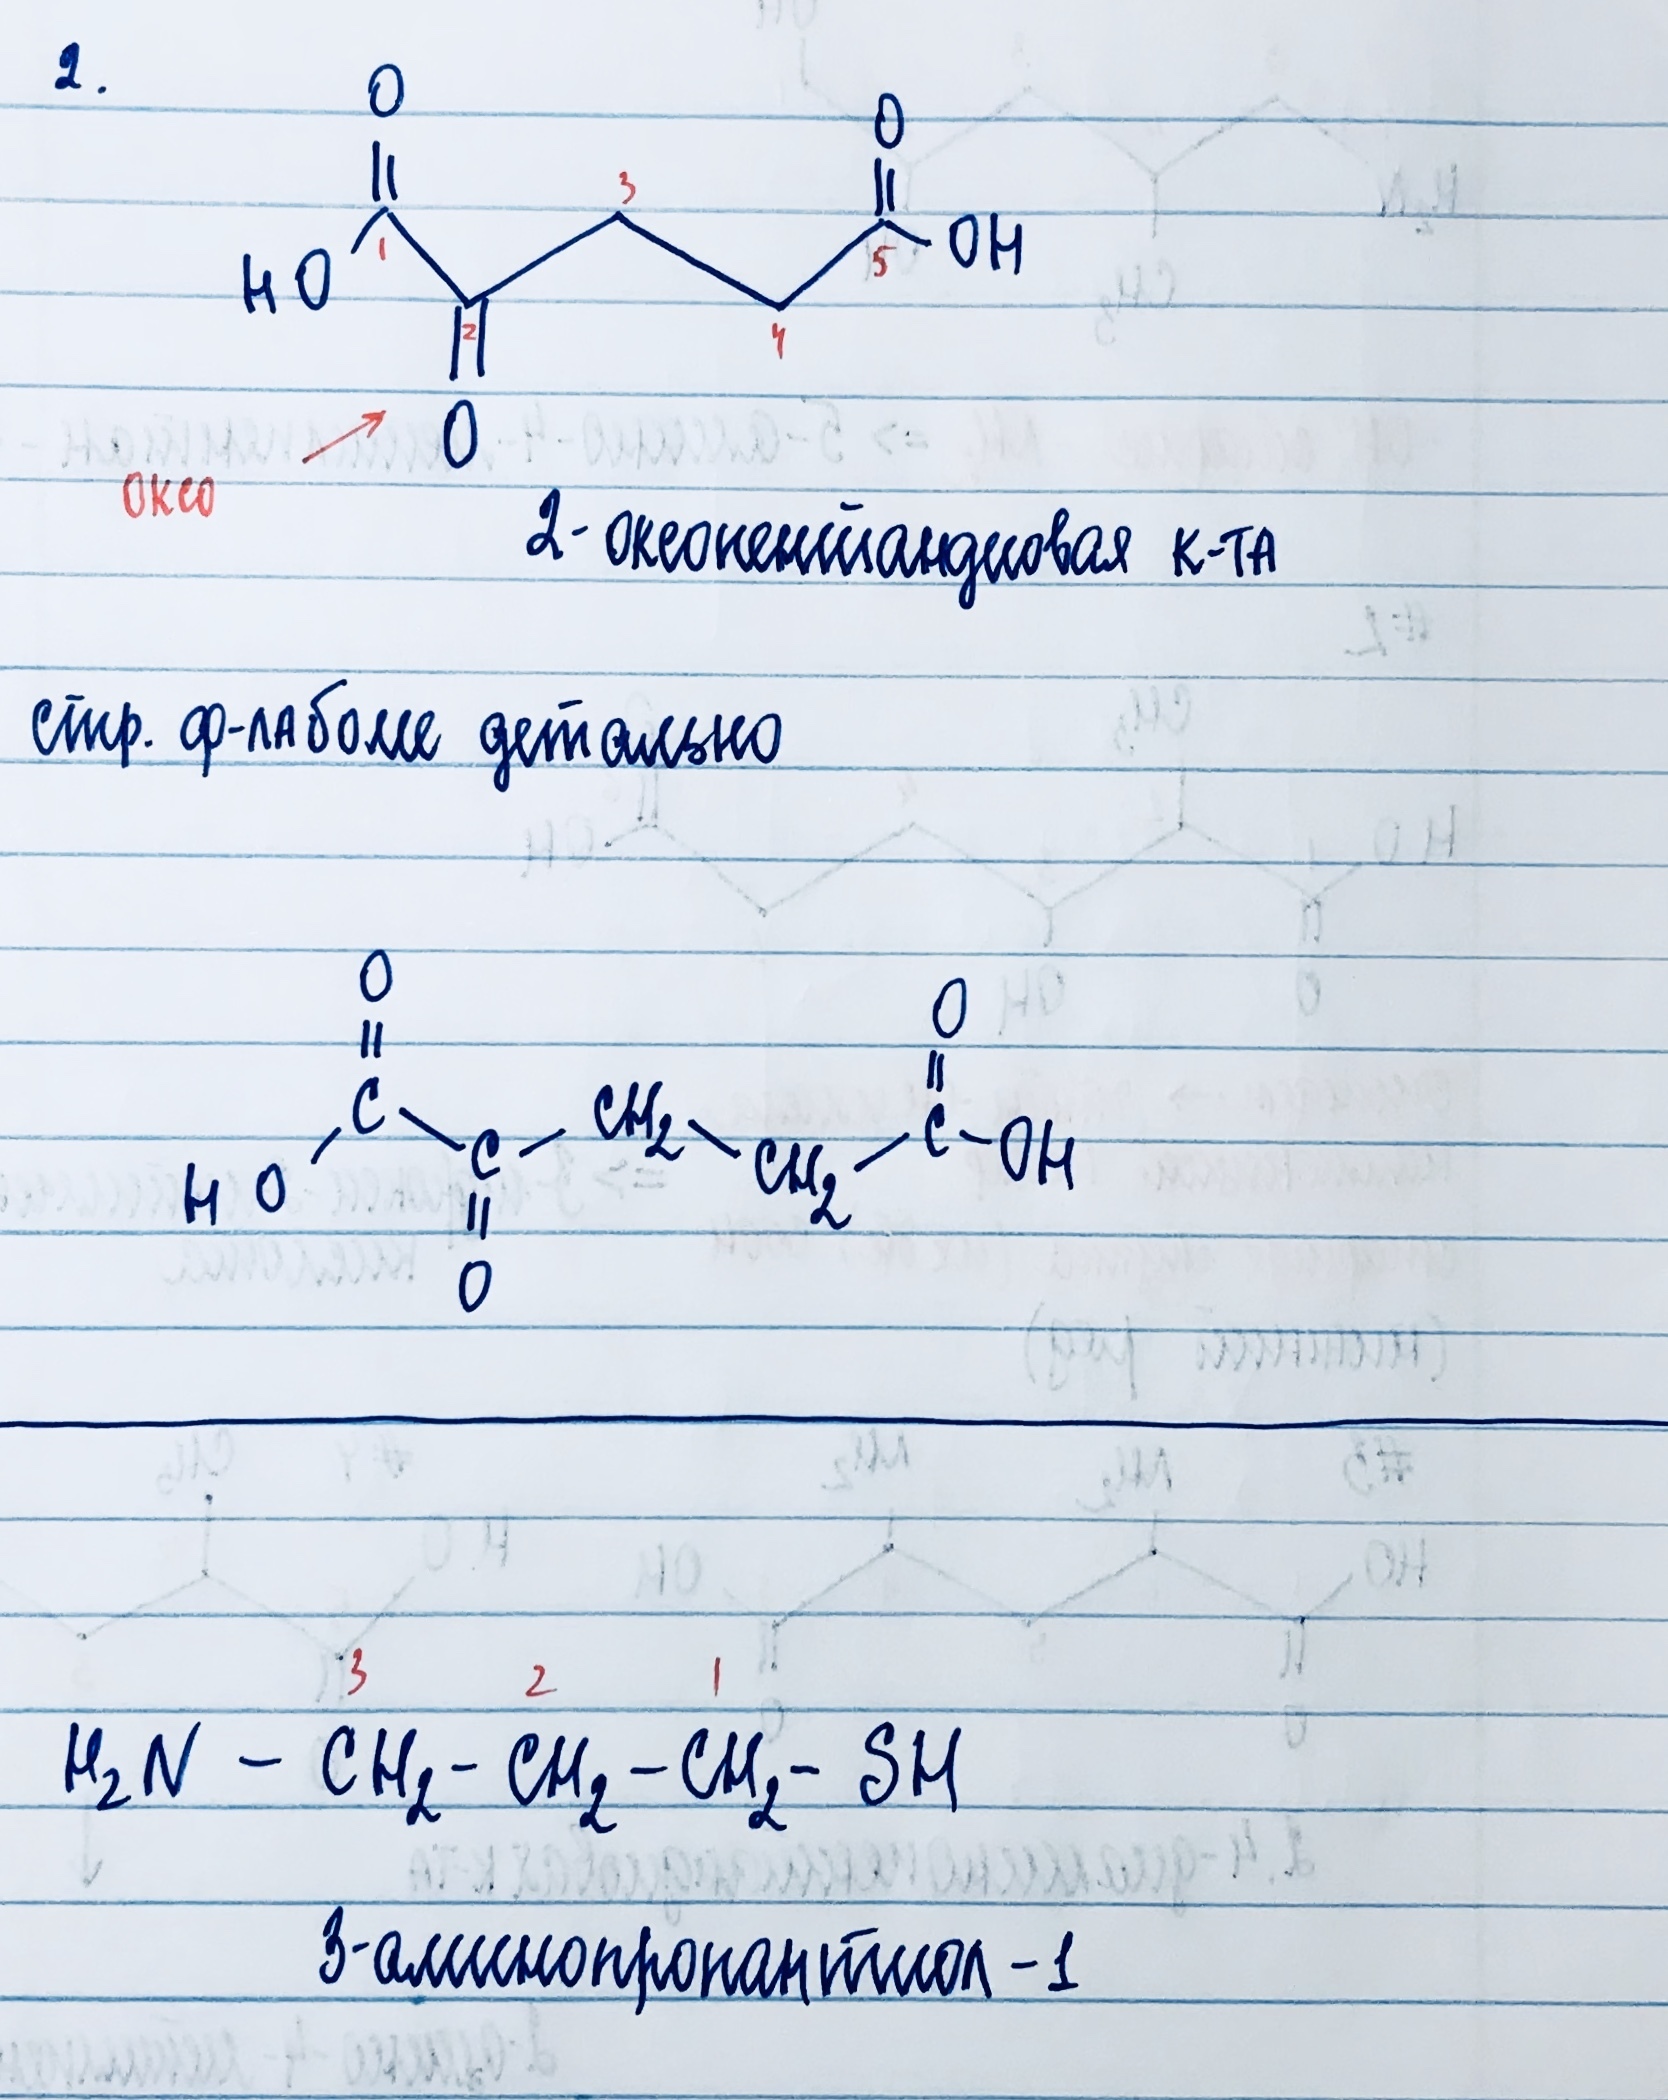 2.
O
O
3
HO 1 5 OH
2 4
O
оксо
2-оксопентандиовая к-та
стр. ф-ла более детально
O
O
C CH₂ C-OH
HO C CH₂
O
3 2 1
H₂N - CH₂ - CH₂ - CH₂ - SH
3-аминопропантиол-1